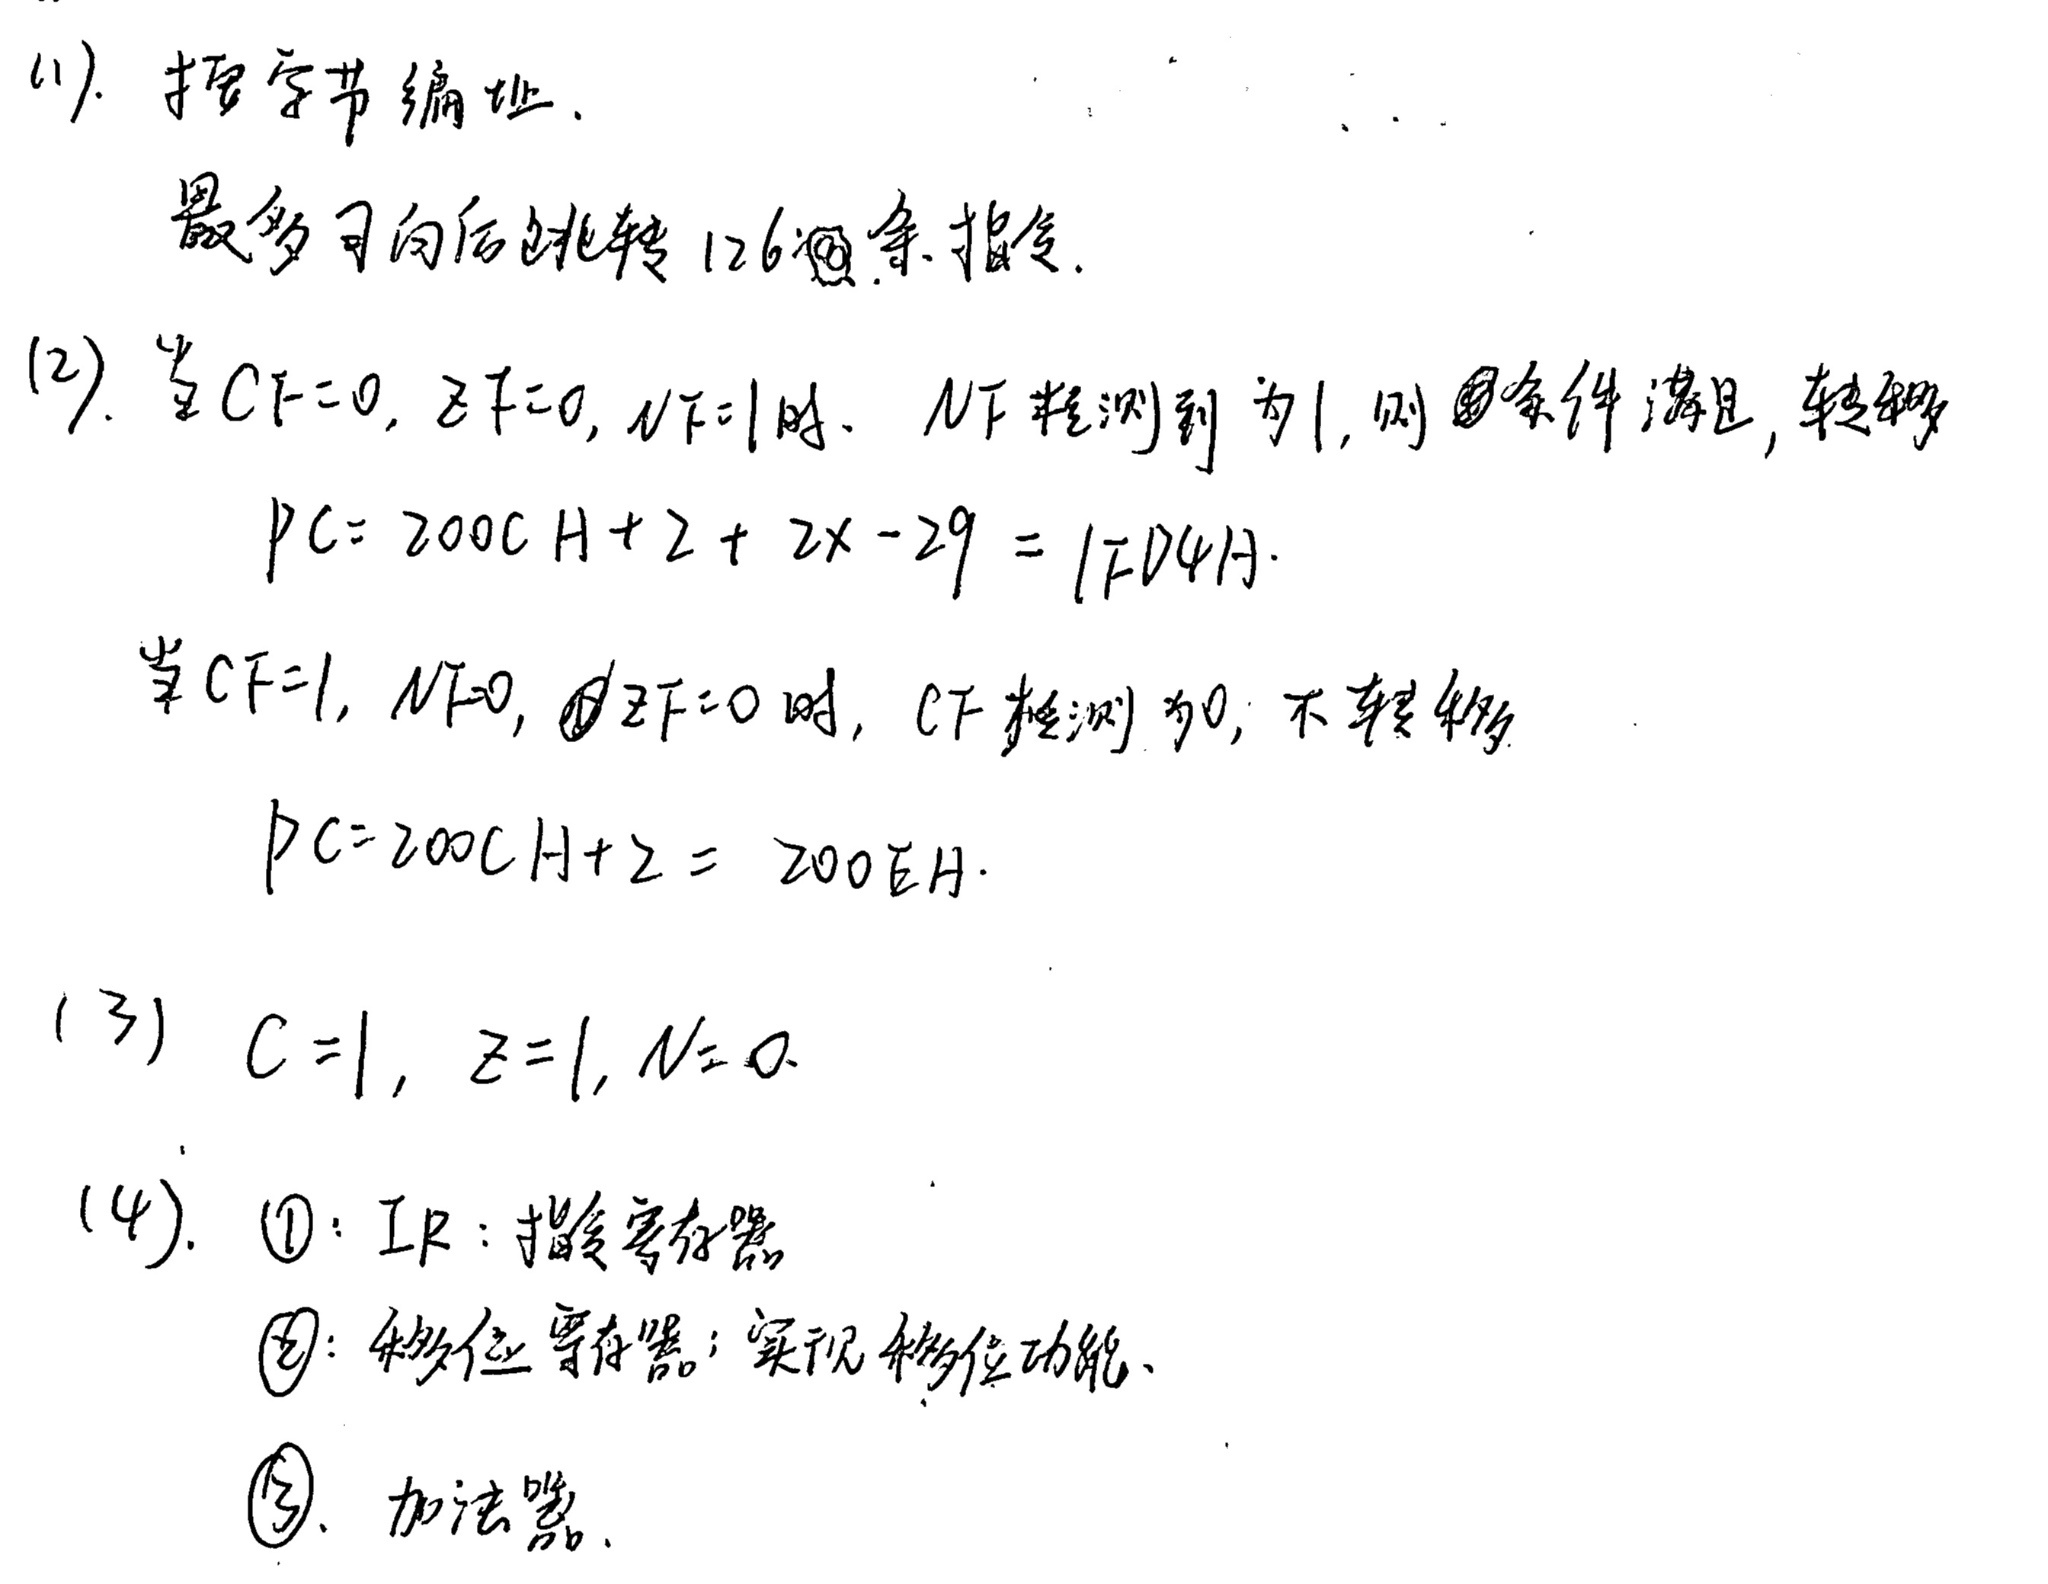 (1). 按字节编址.
最多可向后跳转126条指令.
(2). 当CF=0, ZF=0, NF=1时、 NF检测到为1, 则条件满足, 转移
PC = 200CH + 2 + 2x-29 = 1FD4H.
当CF=1, NF=0, ZF=0时, CF检测为0, 不转移
PC=200CH+2 = 200EH.
(3) C=1, Z=1, N=0.
(4). ①: IR: 指令寄存器
②: 移位寄存器; 实现移位功能、
③、 加法器.